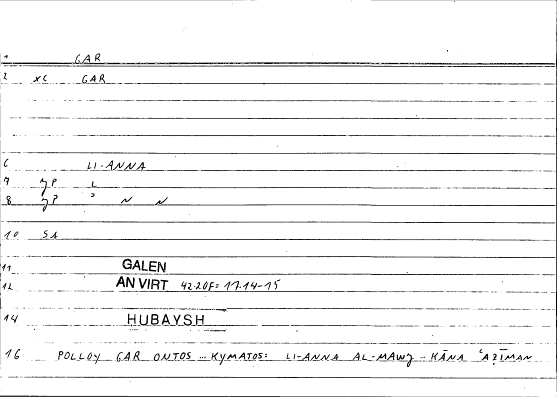 1 GAR
2 XC GAR
6 LI-ANNA
7 ȝP L
8 ȝP ɔ N N
10 SA
11 GALEN
12 AN VIRT 42.20F= 17.14-15
14 HUBAYSH
16 POLLOY GAR ONTOS ... KYMATOS: LI-ANNA AL-MAWȝ - KĀNA ʿAẒĪMAN